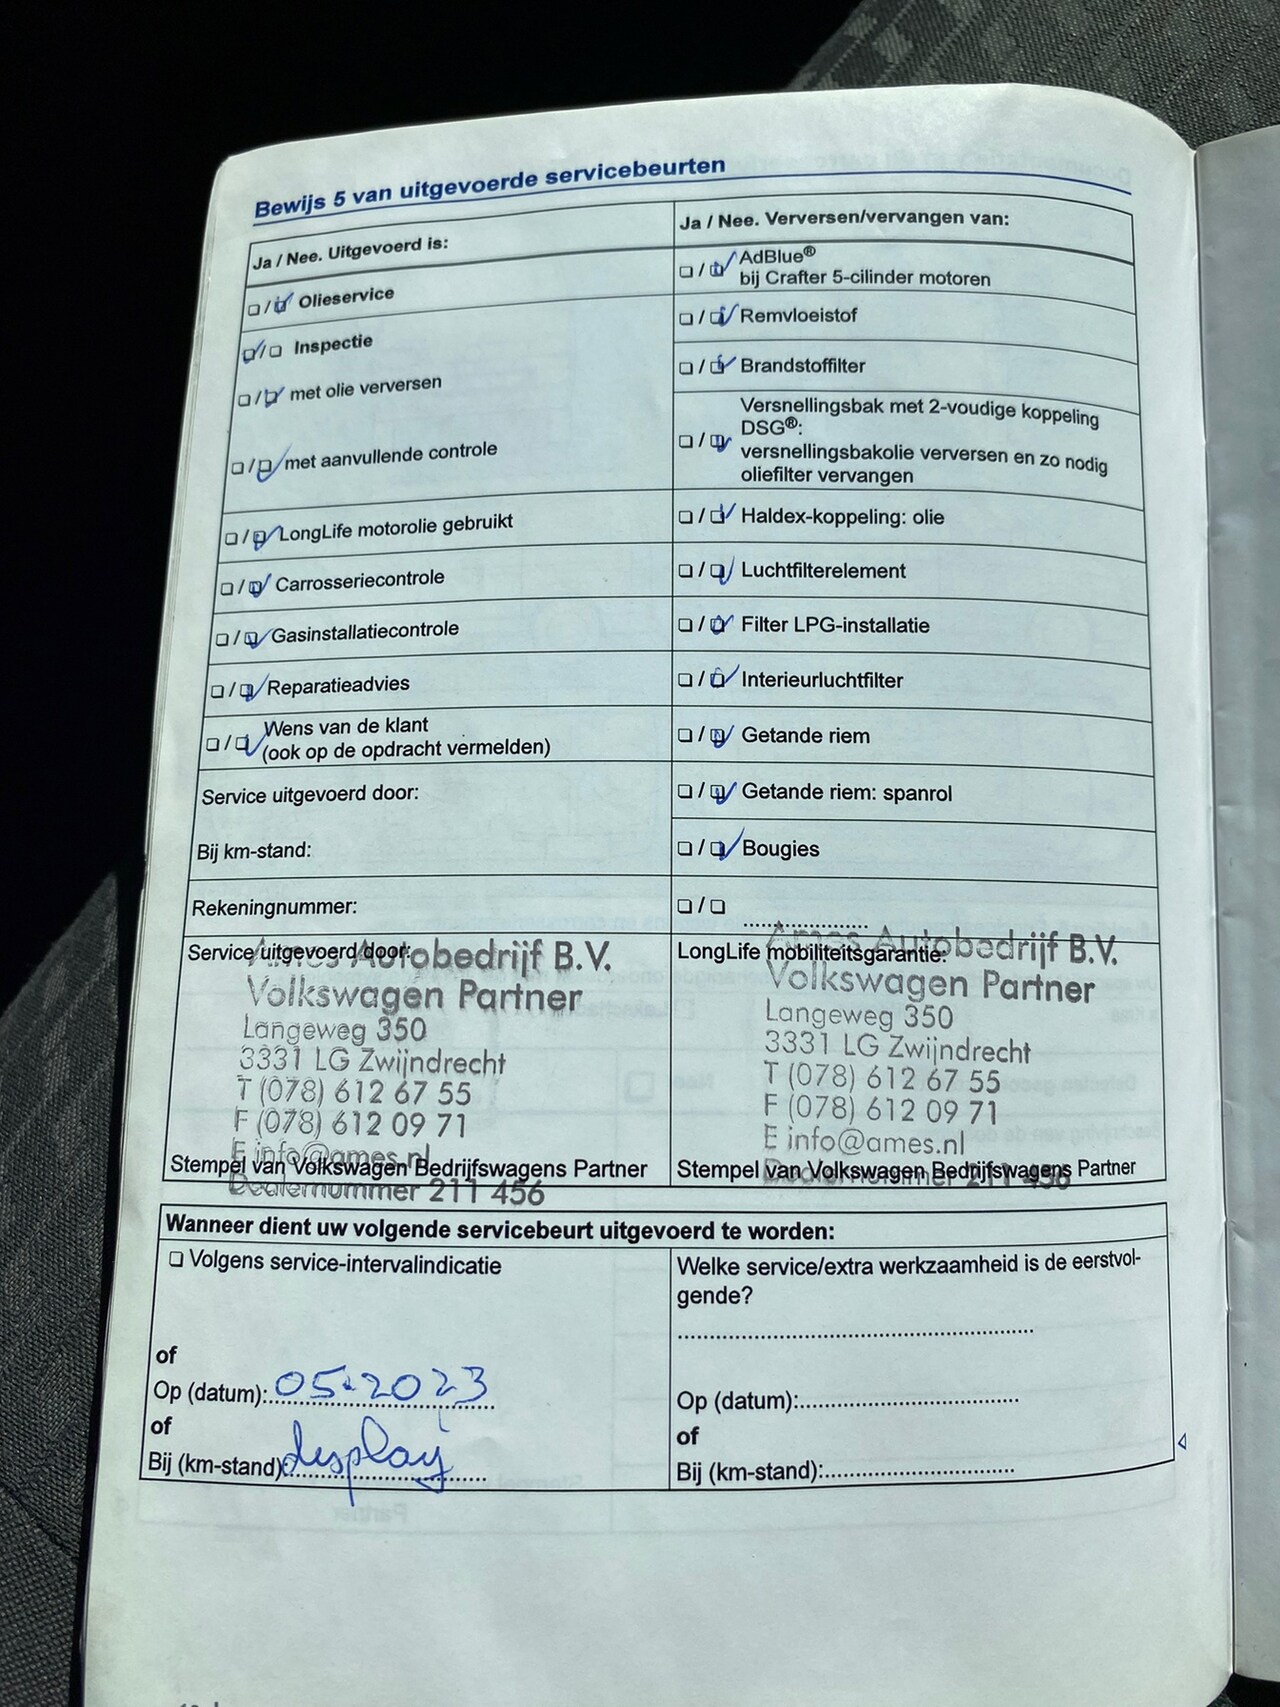 Bewijs 5 van uitgevoerde servicebeurten
Ja / Nee. Uitgevoerd is:
Olieservice
Inspectie
met olie verversen
met aanvullende controle
LongLife motorolie gebruikt
Carrosseriecontrole
Gasinstallatiecontrole
Reparatieadvies
Wens van de klant
(ook op de opdracht vermelden)
Service uitgevoerd door:
Bij km-stand:
Rekeningnummer:
Ja / Nee. Verversen/vervangen van:
AdBlue®
bij Crafter 5-cilinder motoren
Remvloeistof
Brandstoffilter
Versnellingsbak met 2-voudige koppeling
DSG®:
versnellingsbakolie verversen en zo nodig
oliefilter vervangen
Haldex-koppeling: olie
Luchtfilterelement
Filter LPG-installatie
Interieurluchtfilter
Getande riem
Getande riem: spanrol
Bougies
Service uitgevoerd door:
Ames Autobedrijf B.V.
Volkswagen Partner
Langeweg 350
3331 LG Zwijndrecht
T (078) 612 67 55
F (078) 612 09 71
E info@ames.nl
Stempel van Volkswagen Bedrijfswagens Partner
Dealernummer 211 456
LongLife mobiliteitsgarantie:
Ames Autobedrijf B.V.
Volkswagen Partner
Langeweg 350
3331 LG Zwijndrecht
T (078) 612 67 55
F (078) 612 09 71
E info@ames.nl
Stempel van Volkswagen Bedrijfswagens Partner
Dealernummer 211 456
Wanneer dient uw volgende servicebeurt uitgevoerd te worden:
Volgens service-intervalindicatie
of
Op (datum): 05-2023
of
Bij (km-stand): display
Welke service/extra werkzaamheid is de eerstvol-
gende?
Op (datum):
of
Bij (km-stand):